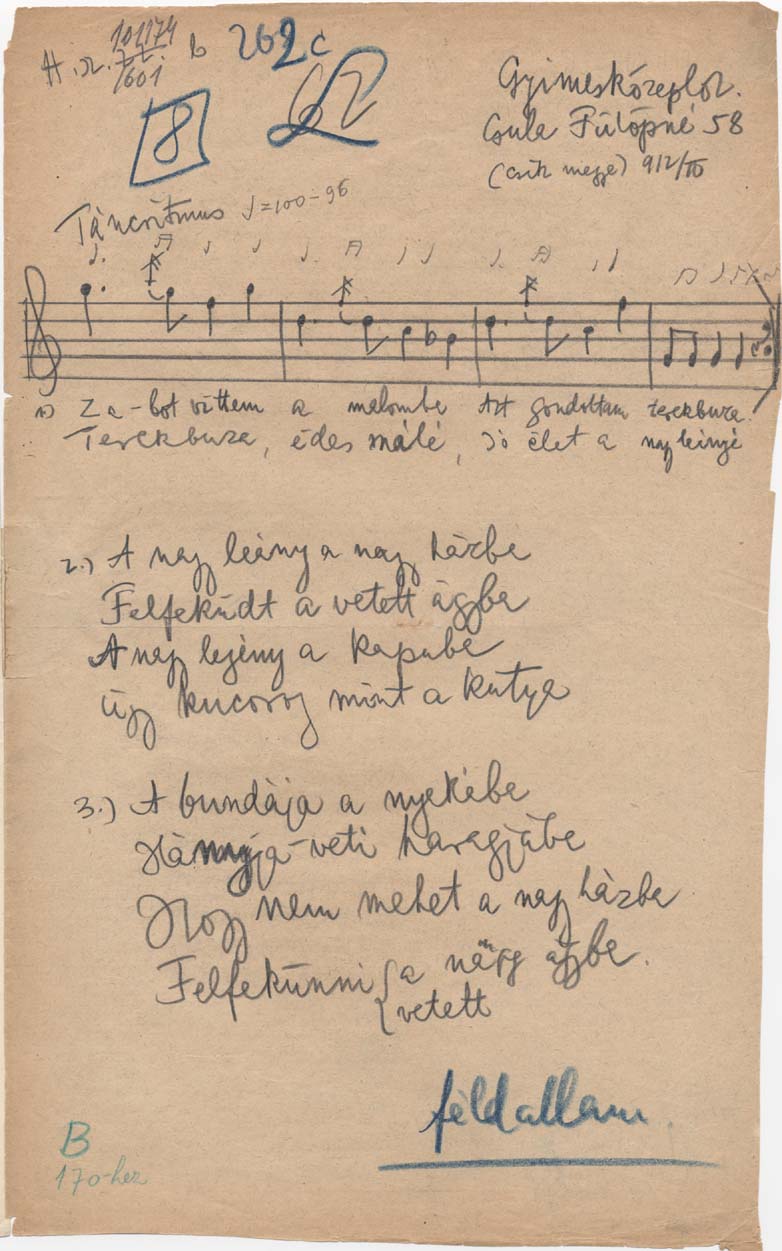 H.sz. 101174 b 262c
601
8 62
Gyimesközeplok.
Csula Fülöpné 58
(Csík megye) 912/III
Táncritmus ♩=100-96
1) Za-bot vittem a malomba Azt gondoltam terekbuza.
Terekbuza, édes málé, Jó élet a nagy leányé
2.) A nagy leány a nagy házba
Felfeküdt a vetett ágyba
A nagy legény a kapuba
Úgy kucorog mint a kutya
3.) A bundája a nyakába
Hánnyja-veti haragjába
Hogy nem mehet a nagy házba
Felfekünni { a nagy ágyba.
vetett
féldallam.
B
170-hez